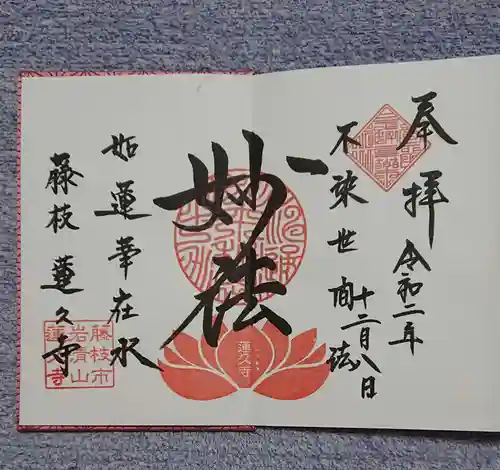 奉拝
令和二年
十二月八日
不染世間法
妙法
如蓮華在水
藤枝 蓮久寺
蓮久寺
藤枝市
岩清山
蓮久寺